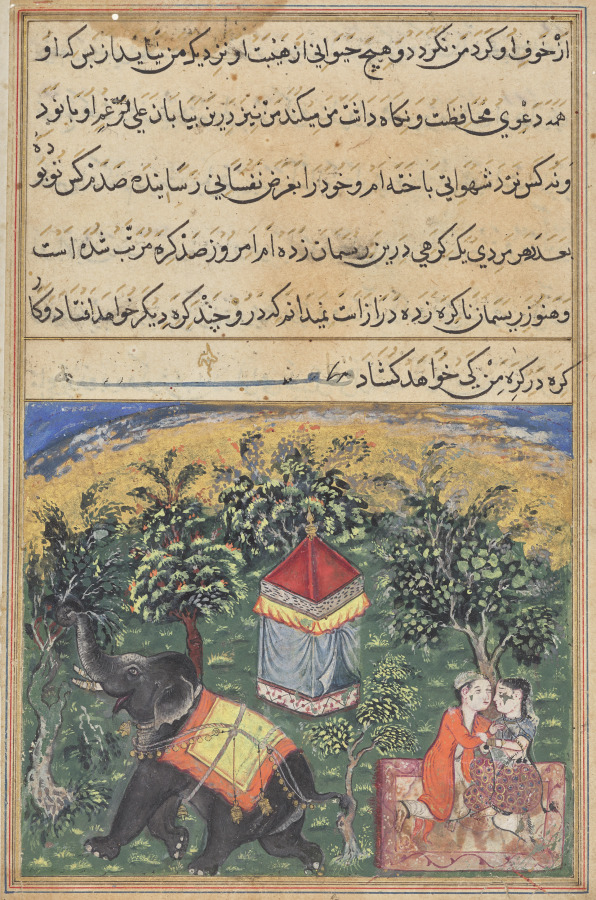 از خوف او کرد من نکردد و هیچ حیوانی از هیبت او نزدیک من نیاید از بس که او
همه دعوی محافظت و نکاه داشت من میکند من نیز درین بیابان علی الرغم او با نود
و نه کس نرد شهواتی باخته ام و خود را بغرض نفسانی رسانیده صد نرکس نوبو ده
بعدد هر مردی یک کرهی درین ریسمان زده ام امروز صد کره مرتب شده است
و هنوز ریسمان ناکره زده دراز است نمیدانم که درو چند کره دیکر خواهد افتاد و کار
کره در کره من کی خواهد کشاد